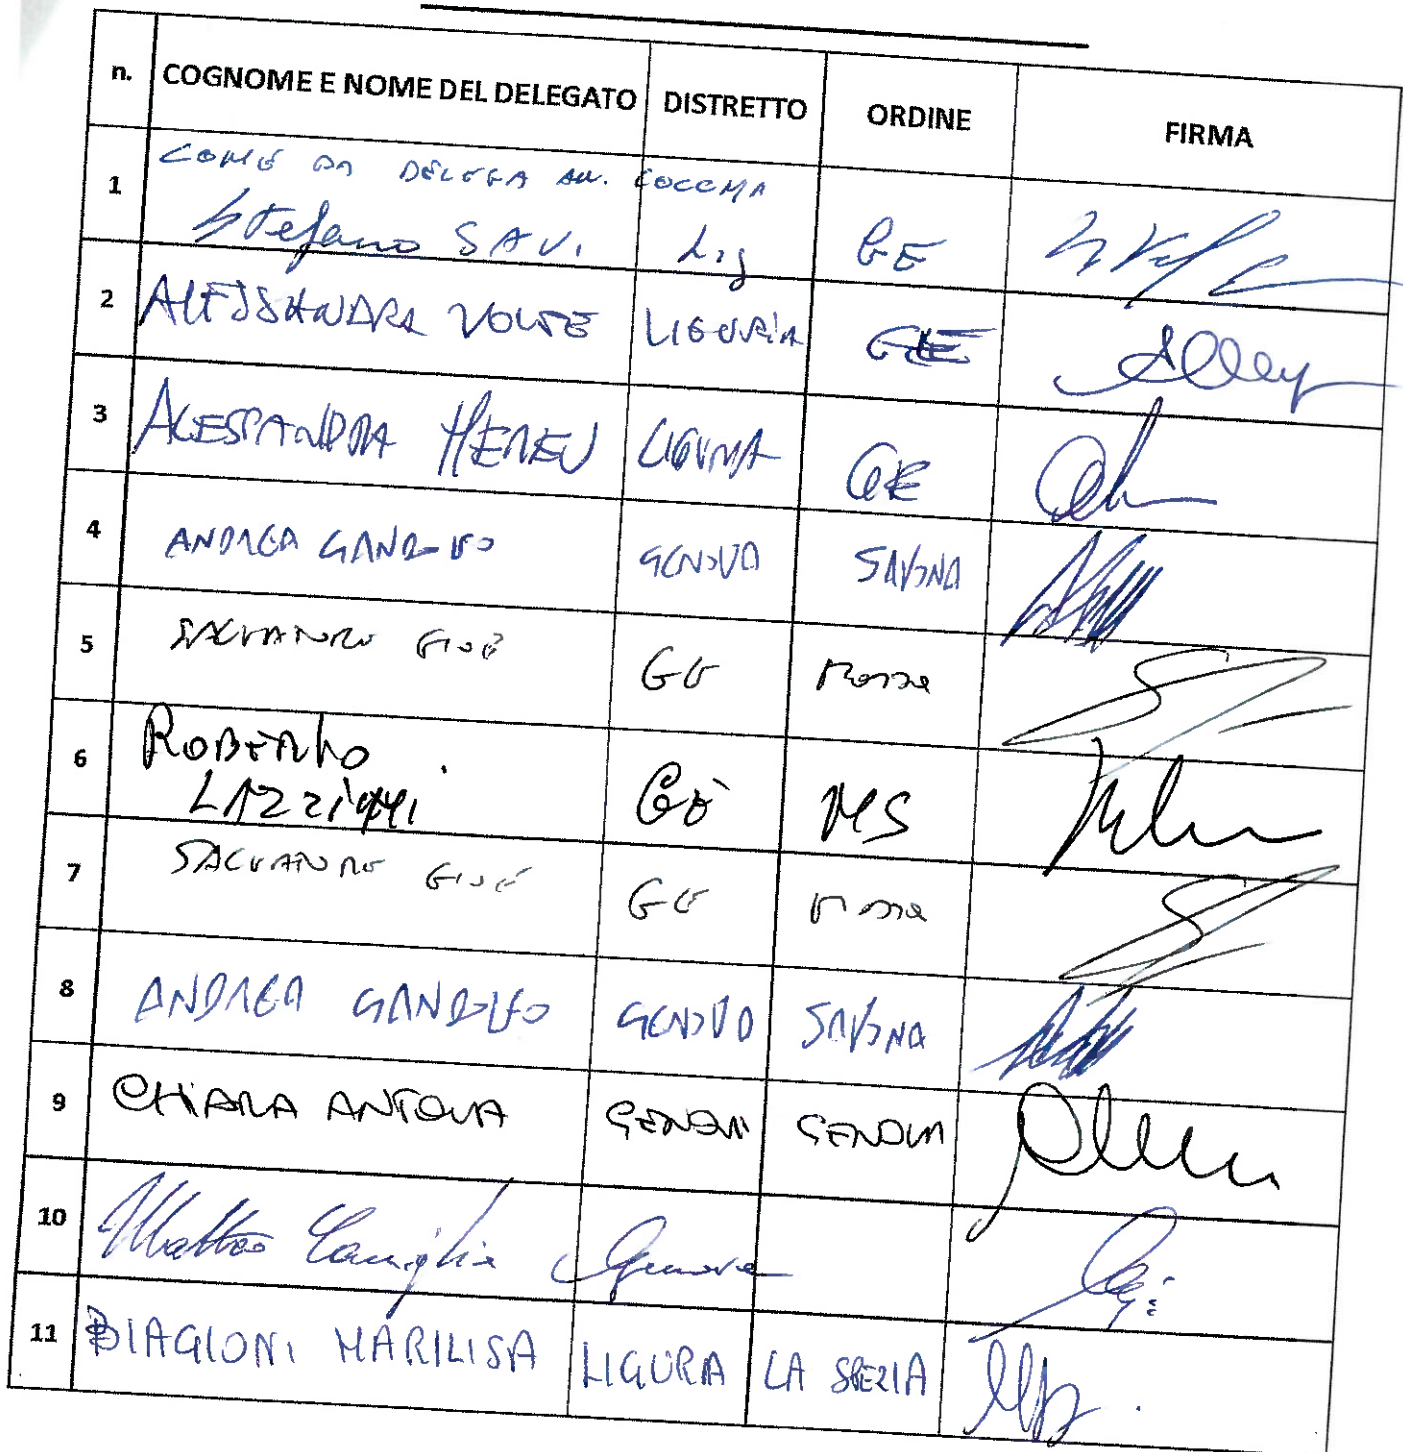 n. COGNOME E NOME DEL DELEGATO DISTRETTO ORDINE FIRMA
COME DA DELEGA AVV.
1 Stefano SAVI Lig GE
2 ALESSANDRA VOLPE LIGURIA GE
3 ALESSANDRA MEREU LIGURIA GE
4 ANDREA GANDOLFO GENOVA SAVONA
5 SALVATORE GIOÈ GE Massa
6 ROBERTO
LAZZINI GE MS
7 SALVATORE GIOÈ GE Massa
8 ANDREA GANDOLFO GENOVA SAVONA
9 CHIARA ANTOLA GENOVA GENOVA
10 Matteo Caniglia Genova
11 BIAGIONI MARILISA LIGURA LA SPEZIA